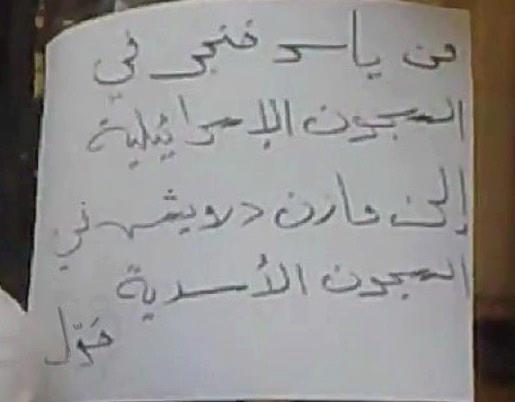 من ياسر خنجر في
السجون الإسرائيلية
إلى مازن درويش في
السجون الأسدية
حوّل